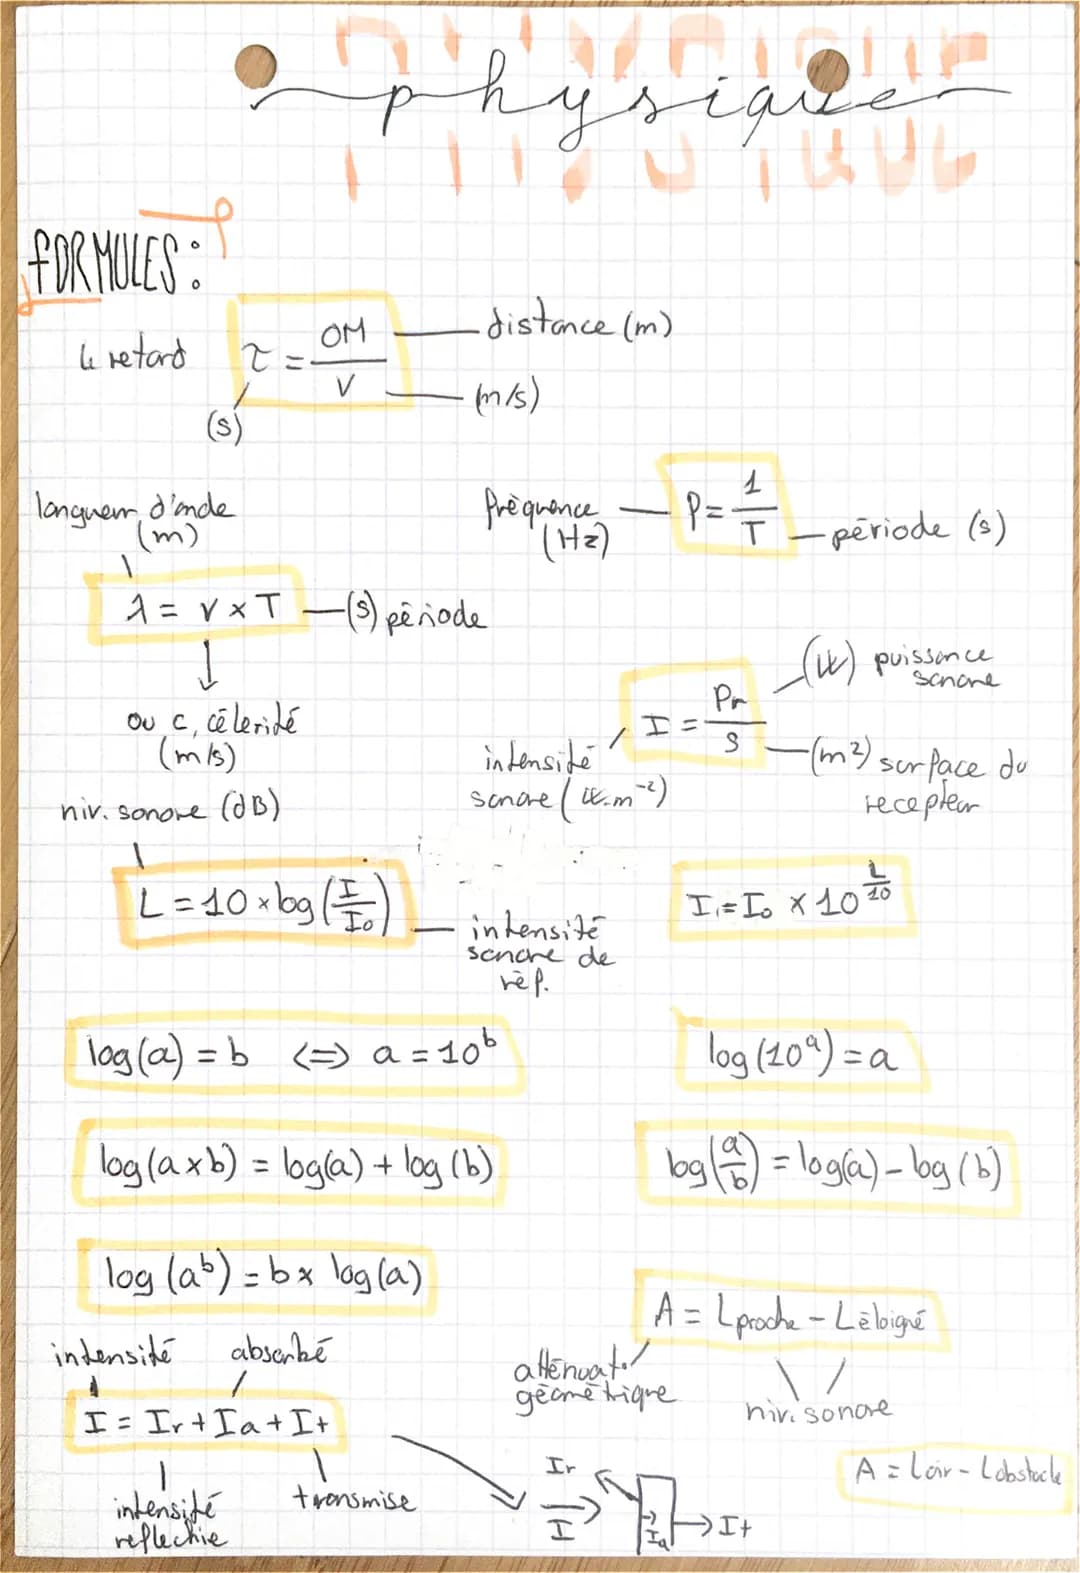 physique
FORMULES :
le retard
τ = OM / V
distance (m)
(m/s)
(s)
longueur d'onde
(m)
fréquence
(Hz)
f = 1 / T
période (s)
λ = v × T
(s) période
ou c, célérité
(m/s)
I = Pr / S
(W) puissance
sonore
(m²) surface du
recepteur
intensité
sonore (W.m⁻²)
niv. sonore (dB)
L = 10 × log(I / I₀)
intensité
sonore de
réf.
I = I₀ × 10^(L/10)
log(a) = b <=> a = 10^b
log(10^a) = a
log(a×b) = log(a) + log(b)
log(a/b) = log(a) - log(b)
log(a^b) = b × log(a)
A = Lproche - Léloigné
atténuat°
géométrique
niv. sonore
intensité
absorbé
I = Ir + Ia + It
intensité
reflechie
transmise
A = Lair - Lobstacle
Ir
I
Ia
It